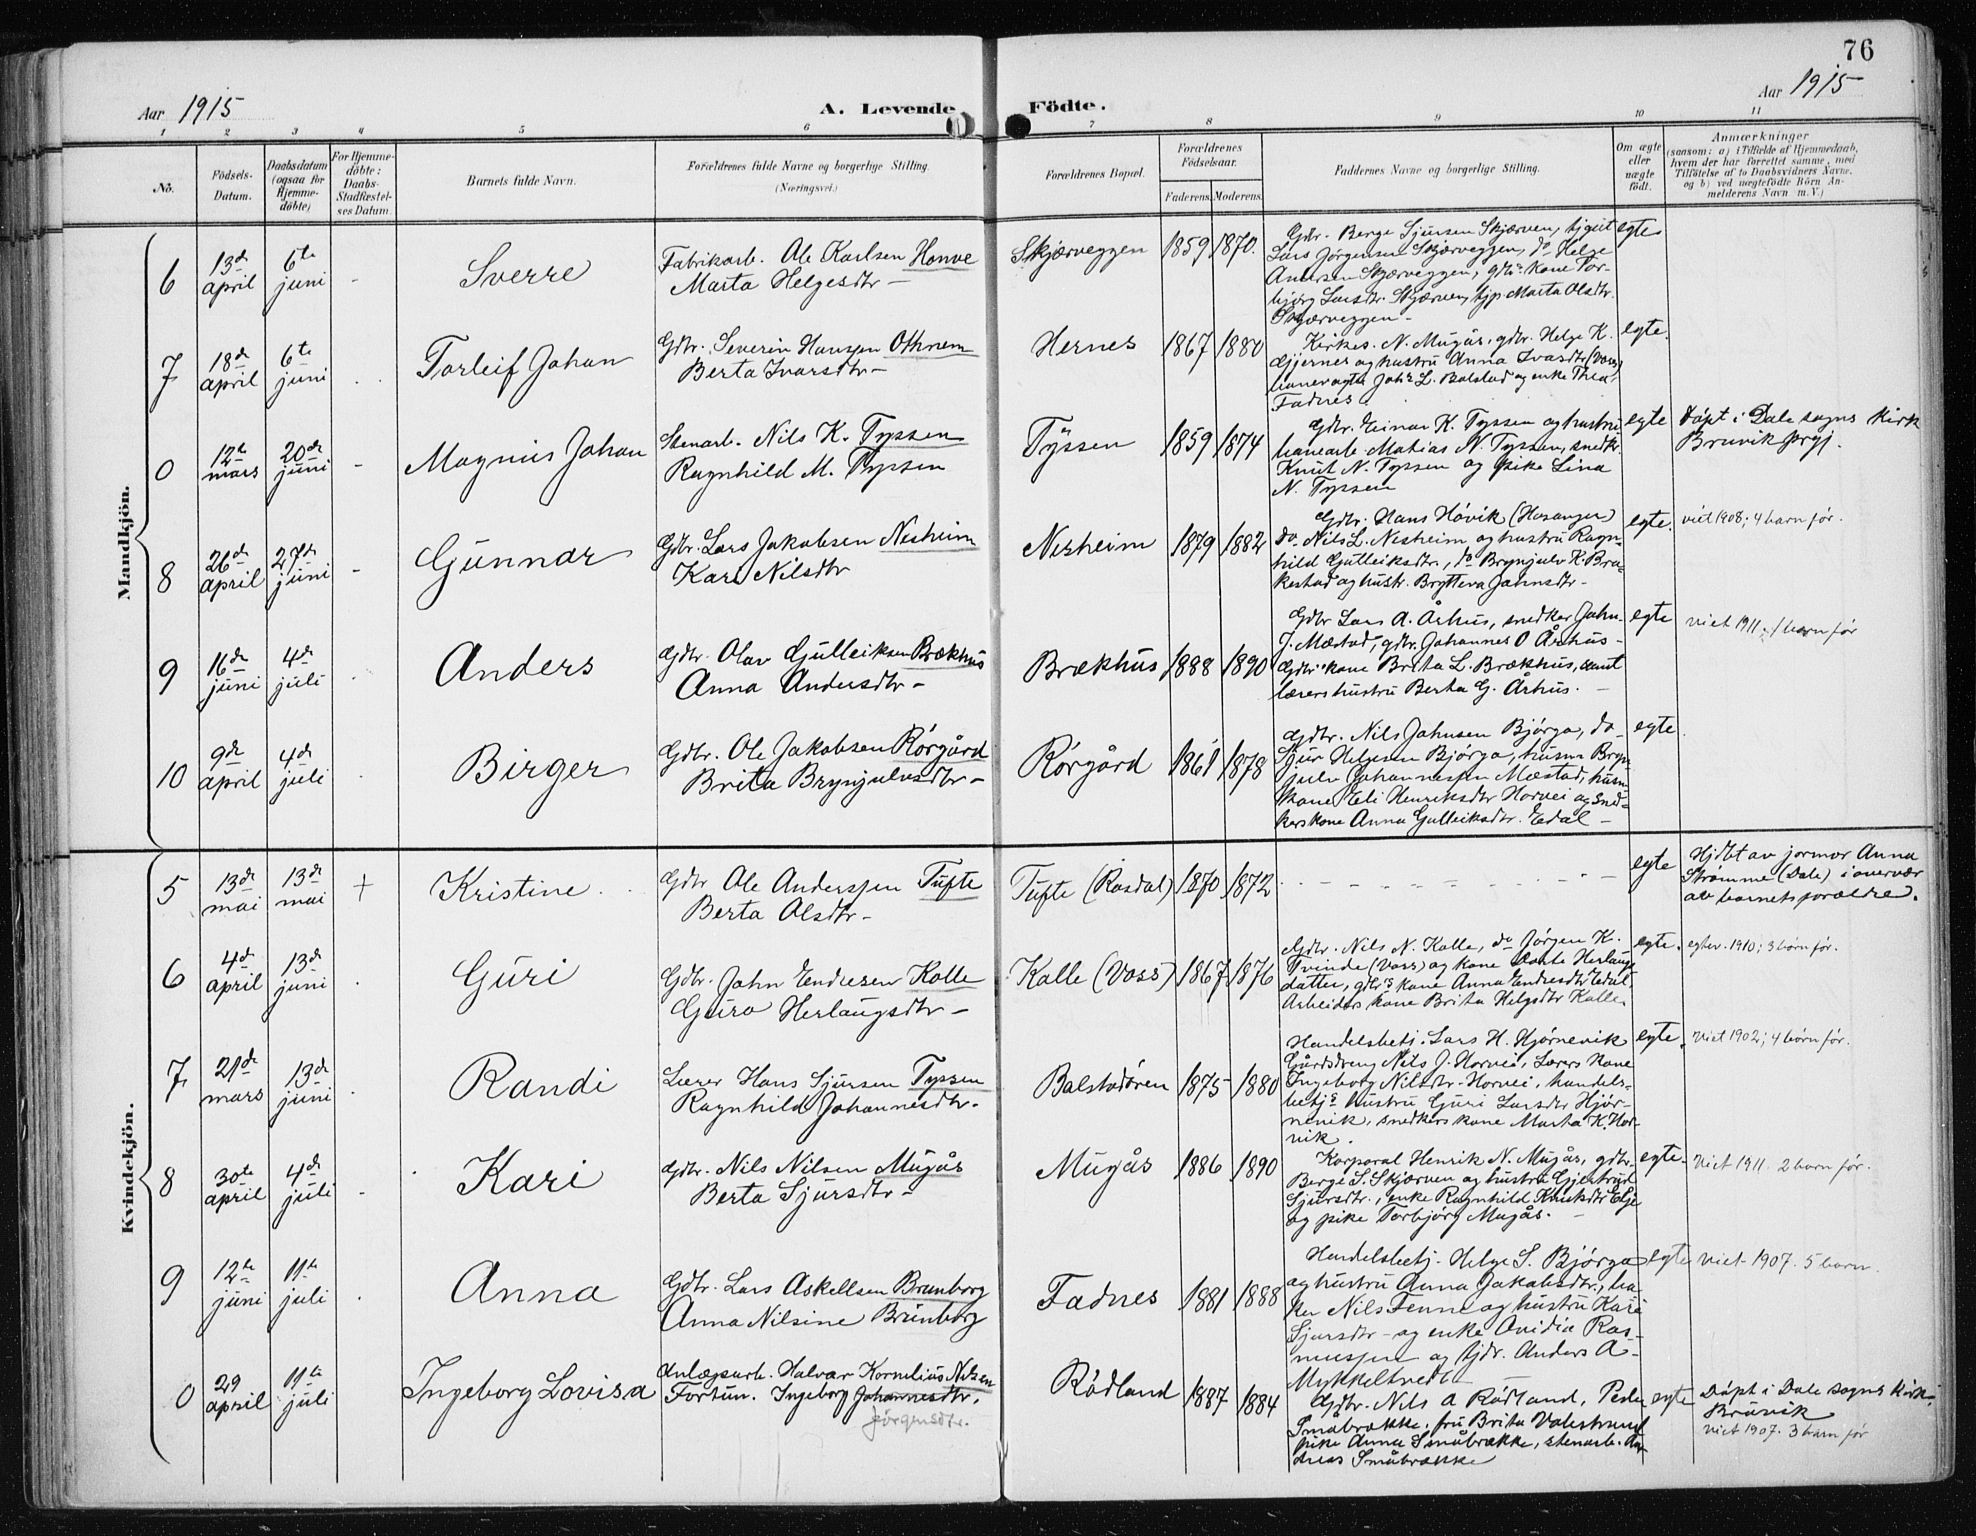 76
Aar 1915
A. Levende Födte.
Aar 1915
1 2 3 4 5 6 7 8 9 10 11
No.
Födsels-Datum.
Daabsdatum (ogsaa for Hjemme-döbte)
For Hjemme-döbte: Daabs-Stadfæstel-ses Datum.
Barnets fulde Navn.
Forældrenes fulde Navne og borgerlige Stilling. (Næringsvei.)
Forældrenes Bopæl.
Forældrenes Födselsaar.
Faderens. Moderens.
Faddernes Navne og borgerlige Stilling.
Om ægte eller uægte födt.
Anmærkninger
(saasom: a) i Tilfælde af Hjemmedaab, hvem der har forrettet samme, med Tilföielse af to Daabsvidners Navne, og b) ved uægtefödte Börn An-melderens Navn m. V.)
Mandkjön.
6 13de april 6te juni - Sverre
Fabrikarb. Ole Karlsen Honve
Marta Helgesdtr -
Skjærveggen 1859 1870.
Gdbr. Berge Sjursen Skjærven, tjgut
Lars Jørgensen Skjærveggen, do Helge
Andersen Skjærveggen, gdbrs kone Tor-
bjørg Larsdtr. Skjærven, tjp Marta Olsdtr.
Skjærveggen -
egte
7 18de april 6te juni Torleif Johan
Gdbr. Severin Hansen Othnem
Berta Ivarsdtr -
Hernes 1867 1880
Kirkes. N. Mugås, gdbr. Helge K.
Gjernes og hustru Anna Ivarsdtr (Voss)
Johs L. Balstad og enke Thea
Fadnes
egte.
0 12te mars 20de juni - Magnus Johan
Stenarb. Nils K. Tyssen
Ragnhild M. Tyssen
Tyssen 1859 1874
Gdbr. Einar K. Tyssen og hustru
banearb. Mathias N. Tyssen, snedk.
Knut N. Tyssen og pike Lina
N. Tyssen
egte
Døpt i Dale sogns kirk
Bruvik prgj.
8 26de april 27de juni - Gunnar
Gdbr. Lars Jakobsen Nesheim
Kari Nilsdtr
Nesheim 1879 1882
Gdbr. Hans Høvik (Hosanger)
do. Nils L. Nesheim og hustru Ragn-
hild Gulleiksdtr., do Brynjulv K. Bra-
kestad og hustr. Brytteva Johnsdtr -
egte.
viet 1908; 4 barn før.
9 16de juni 4de juli Anders
Gdbr. Olav Gulleiksen Brækhus
Anna Andersdtr -
Brækhus 1888 1890
Gdbr Lars A. Århus, snedker John
J. Mæstad, gdbr. Johannes O Århus -
Gdbrs kone Brita L. Brækhus, samt
lærers hustru Berta G. Århus. -
egte
viet 1911. 1 barn før
10 9de april 4de juli Birger
Gdbr. Ole Jakobsen Rörgård
Brita Brynjulvsdtr -
Rörgård 1861 1878
Gdbr. Nils Johnsen Bjørga, do
Sjur Helgesen Bjørga, husm Bryn-
julv Johannessen Mæstad, husm
kone Eli Henriksdtr Horvei og sned-
kers kone Anna Gulleiksdtr. Edal -
egte
Kvindekjön.
5 13de mai 13de mai + Kristine
Gdbr Ole Anderssen Tufte
Berta Olsdtr -
Tufte (Rasdal) 1870 1872
egte
Hjdbt av jormor Anna
Strømme (Dale) i overvær
av barnets forældre.
6 4de april 13de juni Guri
Gdbr. John Endresen Kalle
Guro Herlaugsdtr -
Kalle (Voss) 1867 1876
Gdbr. Nils N. Kalle, do Jørgen K.
Tvinde (Voss) og kone Dorte Herlaugs
datter, gdbrs kone Anna Endresdtr Edal
Arbeiders kone Brita Helgsdtr Kalle.
egte.
egtev. 1910; 3 børn før.
7 21de mars 13de juni Randi
Lærer Hans Sjursen Tyssen
Ragnhild Johannesdtr.
Balstadören 1875 1880
Handelsbetj. Lars H. Hjørnevik
Gårdsdreng Nils J. Horvei, lærers kone
Ingeborg Nilsdtr. Horvei, handels-
betjs hustru Guri Larsdtr Hjør-
nevik, snedkers kone Marta K. Hor-
vik.
egte.
viet 1902; 4 børn før.
8 30te april 4de juli - Kari
Gdbr. Nils Nilsen Mugås
Berta Sjursdtr -
Mugås 1886 1890
Korporal Henrik N. Mugås, gdbr.
Berge S. Skjærven og hustru Gjertrud
Sjursdtr., enke Ragnhild Knutsdtr Elje
og pike Torbjørg Mugås. -
egte.
Viet 1911. 2 barn før.
9 12te juni 11te juli Anna
Gdbr. Lars Askellsen Brunborg
Anna Nilsine Brunborg
Fadnes 1881 1888
Handelsbetj. Helge S. Bjørga
og hustru Anna Jakobsdtr., ba-
ker Nils Fenne og hustru Kari
Sjursdtr - og enke Ovidia Ras-
mussen og tjdr. Anders A -
Mykkeltvedt -
egte
viet 1907. 5 barn.
0 29 april 11te juli Ingeborg Lovisa
Anlægsarb. Halvar Kornelius Nilsen
Fortun. Ingeborg Johannesdtr.
Jörgensdtr.
Rödland 1887 1884
Gdbr. Nils A Rödland, Peder
Småbrække, fru Brita Valestrand
pike Anna Småbrække, stenarb. An-
dreas Småbrække
egte
Döpt i Dale sogns kirk.
Bruvik
viet 1907. 3 barn før